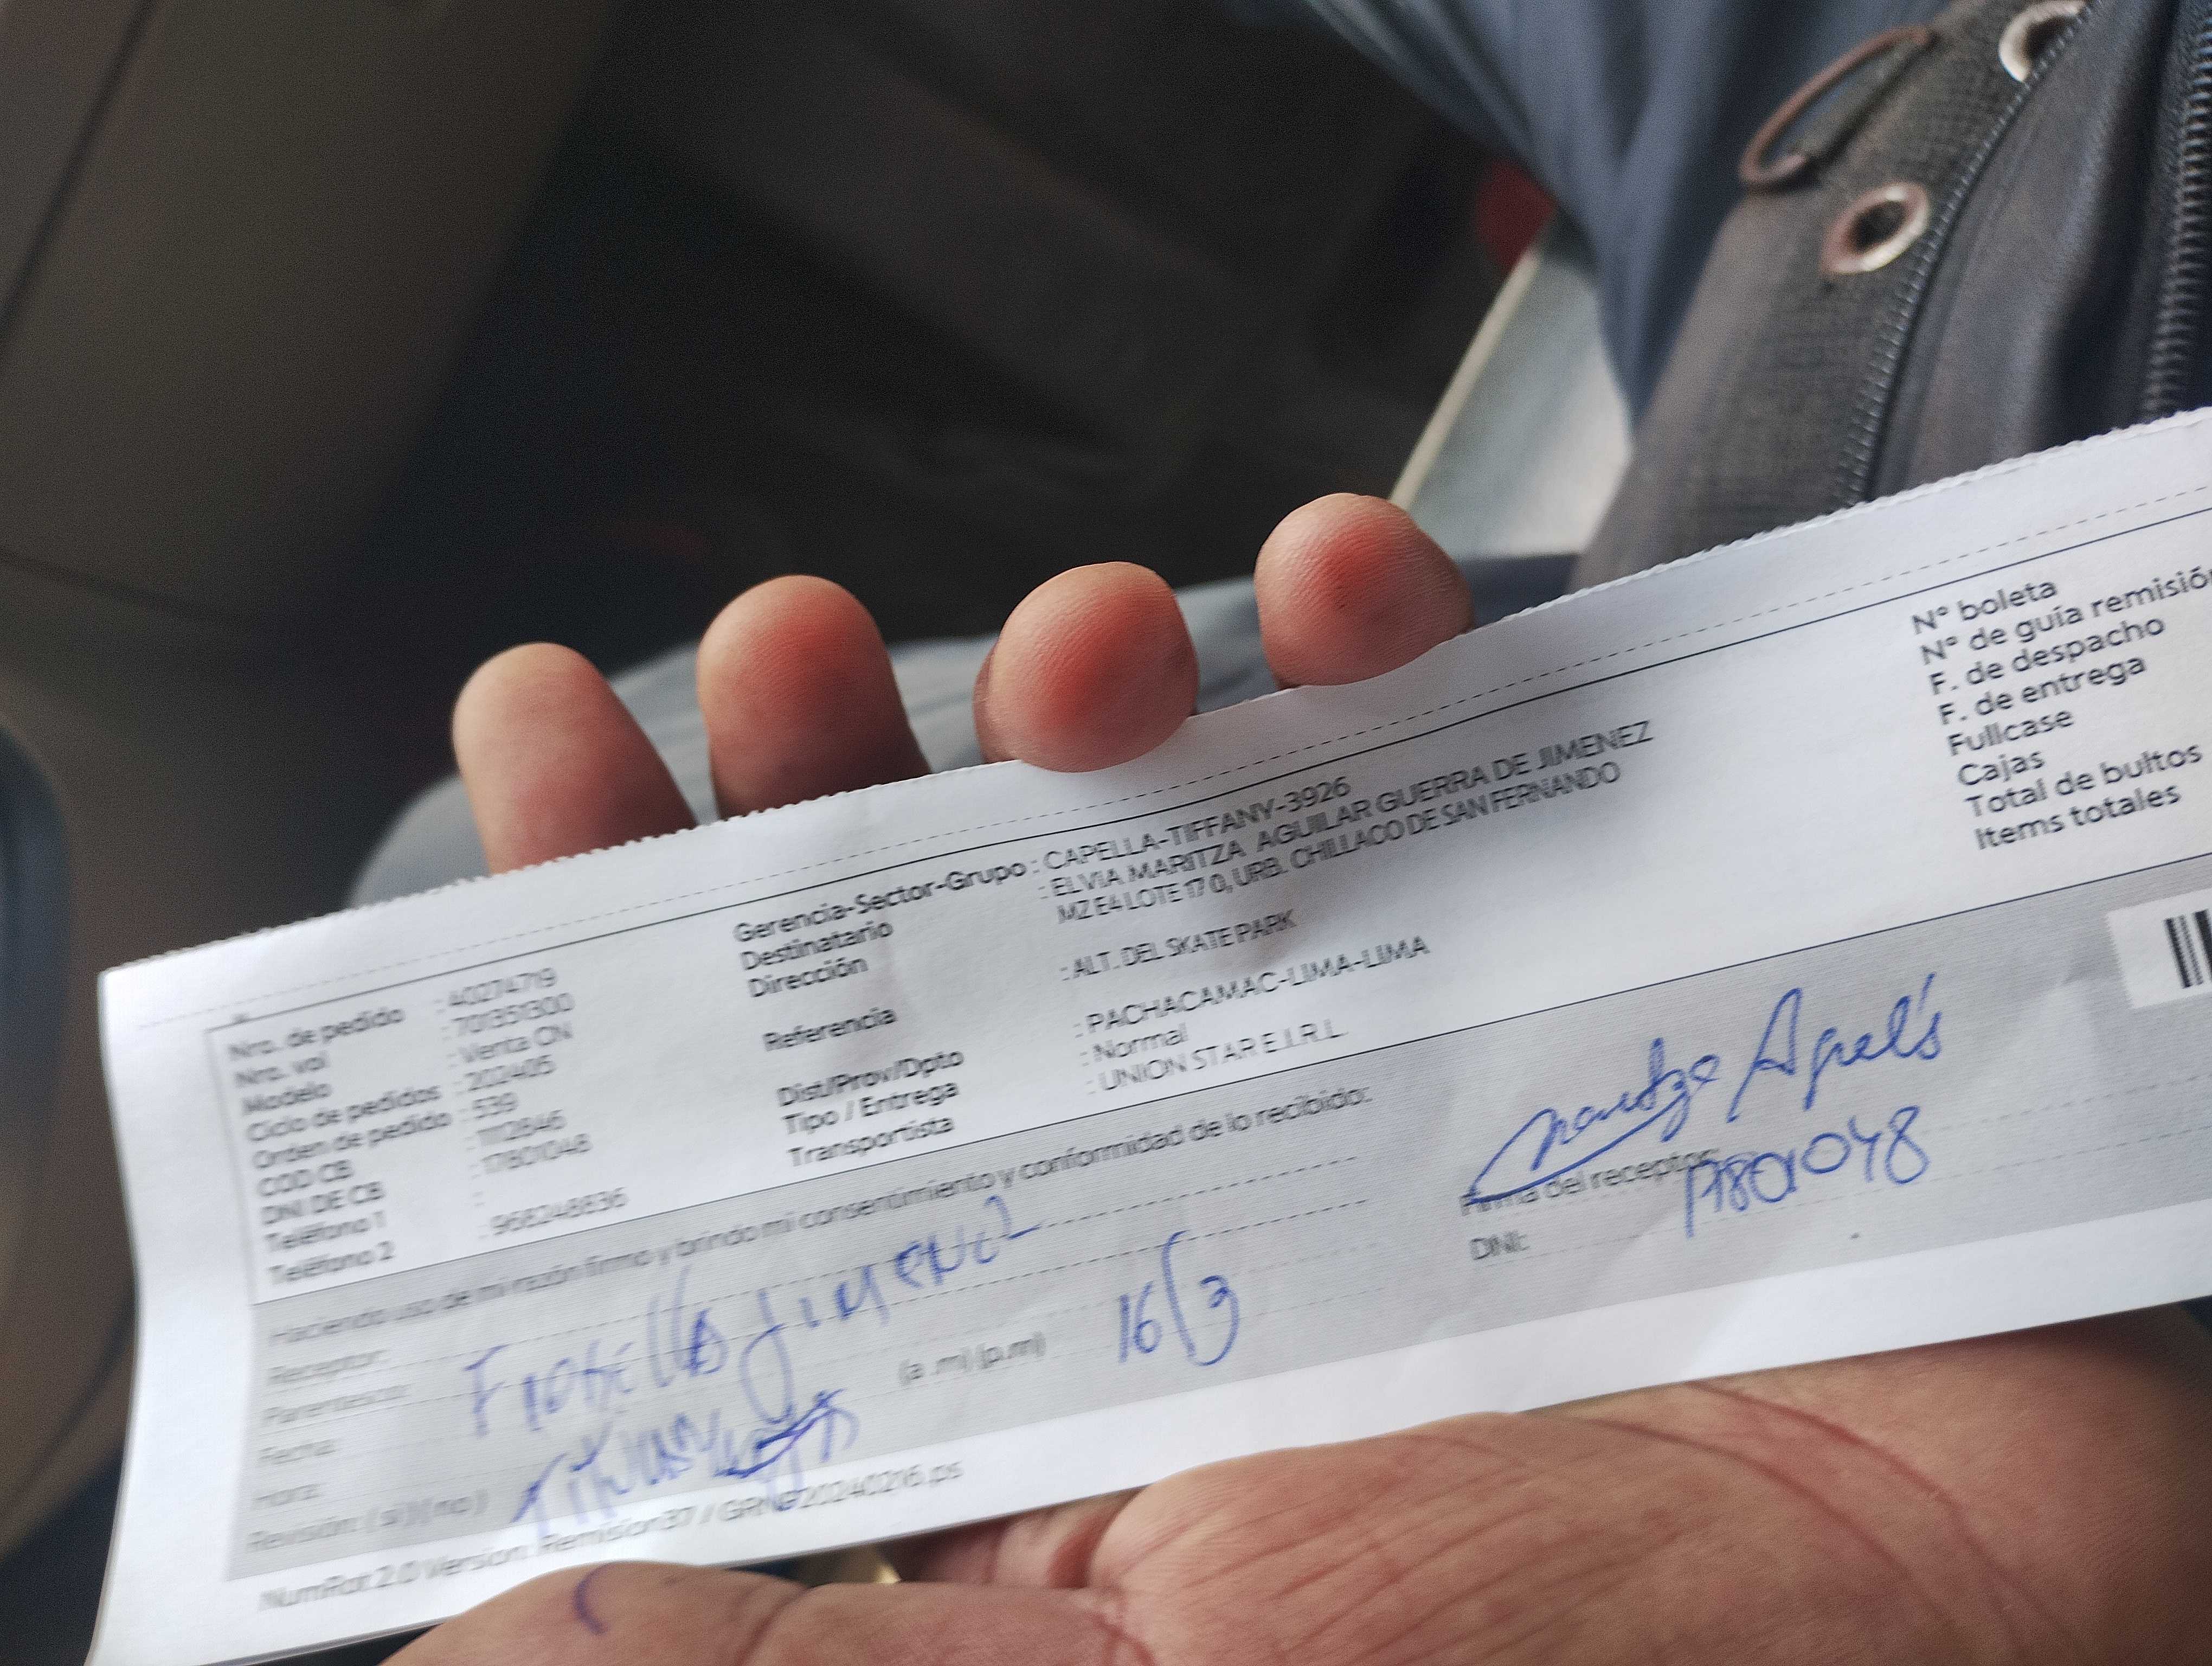 Nro. de pedido : 40274719
Nro. vol : 701351300
Modelo : Venta CN
Ciclo de pedidos : 202405
Orden de pedido : 539
COD CB : 1112646
DNI DE CB : 17801048
Teléfono 1 :
Teléfono 2 : 968248836
Gerencia-Sector-Grupo : CAPELLA-TIFFANY-3926
Destinatario : ELVIA MARITZA AGUILAR GUERRA DE JIMENEZ
Dirección MZ E4 LOTE 17 0, URB. CHILLACO DE SAN FERNANDO
Referencia : ALT. DEL SKATE PARK
Dist/Prov/Dpto : PACHACAMAC-LIMA-LIMA
Tipo / Entrega : Normal
Transportista : UNION STAR E.I.R.L.
N° boleta
N° de guía remisión
F. de despacho
F. de entrega
Fullcase
Cajas
Total de bultos
Items totales
Haciendo uso de mi razón firmo y brindo mi consentimiento y conformidad de lo recibido:
Receptor: Fiorella Jimenez
Parentesco:
Fecha: 16/3
Hora: (a .m) (p.m)
Revisión: ( si )( no )
Firma del receptor:
DNI: 17801048
NumRot 2.0 Version: Remision37 / GRNB20240216.ps